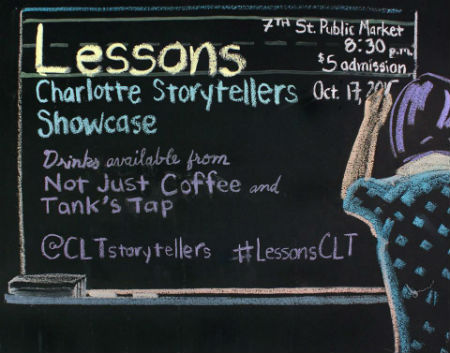 7TH St. Public Market
8:30 p.m.
$5 admission
Lessons
Charlotte Storytellers Oct. 17,
Showcase
Drinks available from
Not Just Coffee and
Tank's Tap
@CLTstorytellers #LessonsCLT